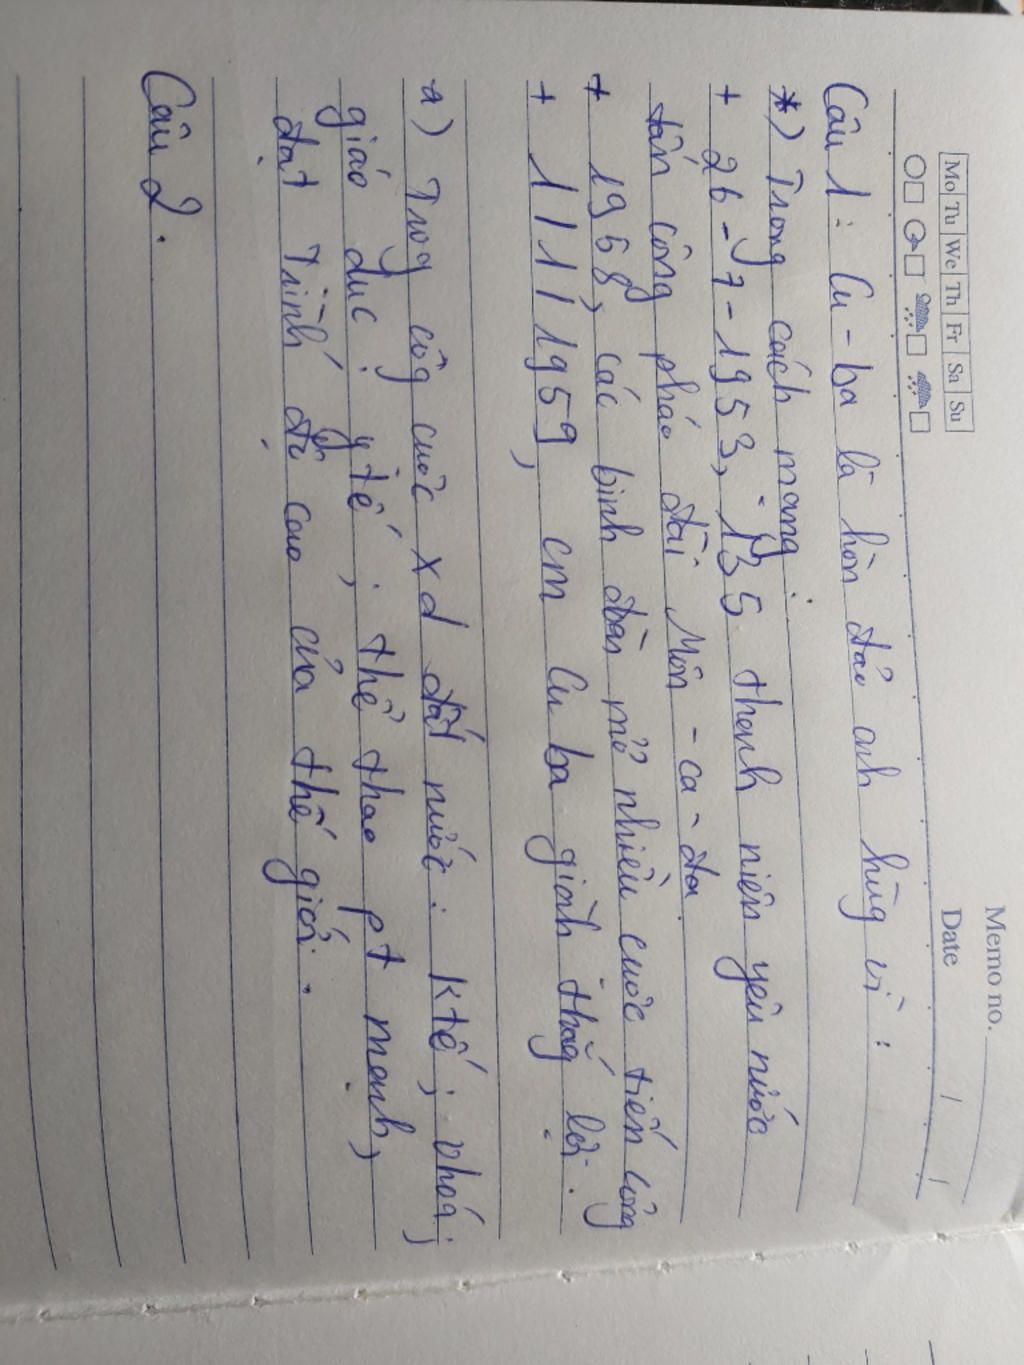 Memo no.
Mo Tu We Th Fr Sa Su
Date / /
Câu 1: Cu-ba là hòn đảo anh hùg vì:
*) Trong cách mạng:
+ 26-7-1953, 135 thanh niên yêu nước
tấn công pháo đài Môn-ca-đa
+ 1958, các binh đoàn mở nhiều cuộc tiến công
+ 1/1/1959, cm Cu ba giành thắg lợi.
*) Trog côg cuộc xd đất nước: Ktế; vhoá;
giáo dục; ytế; thể thao pt mạnh,
đạt trình độ cao của thế giới.
Câu 2.